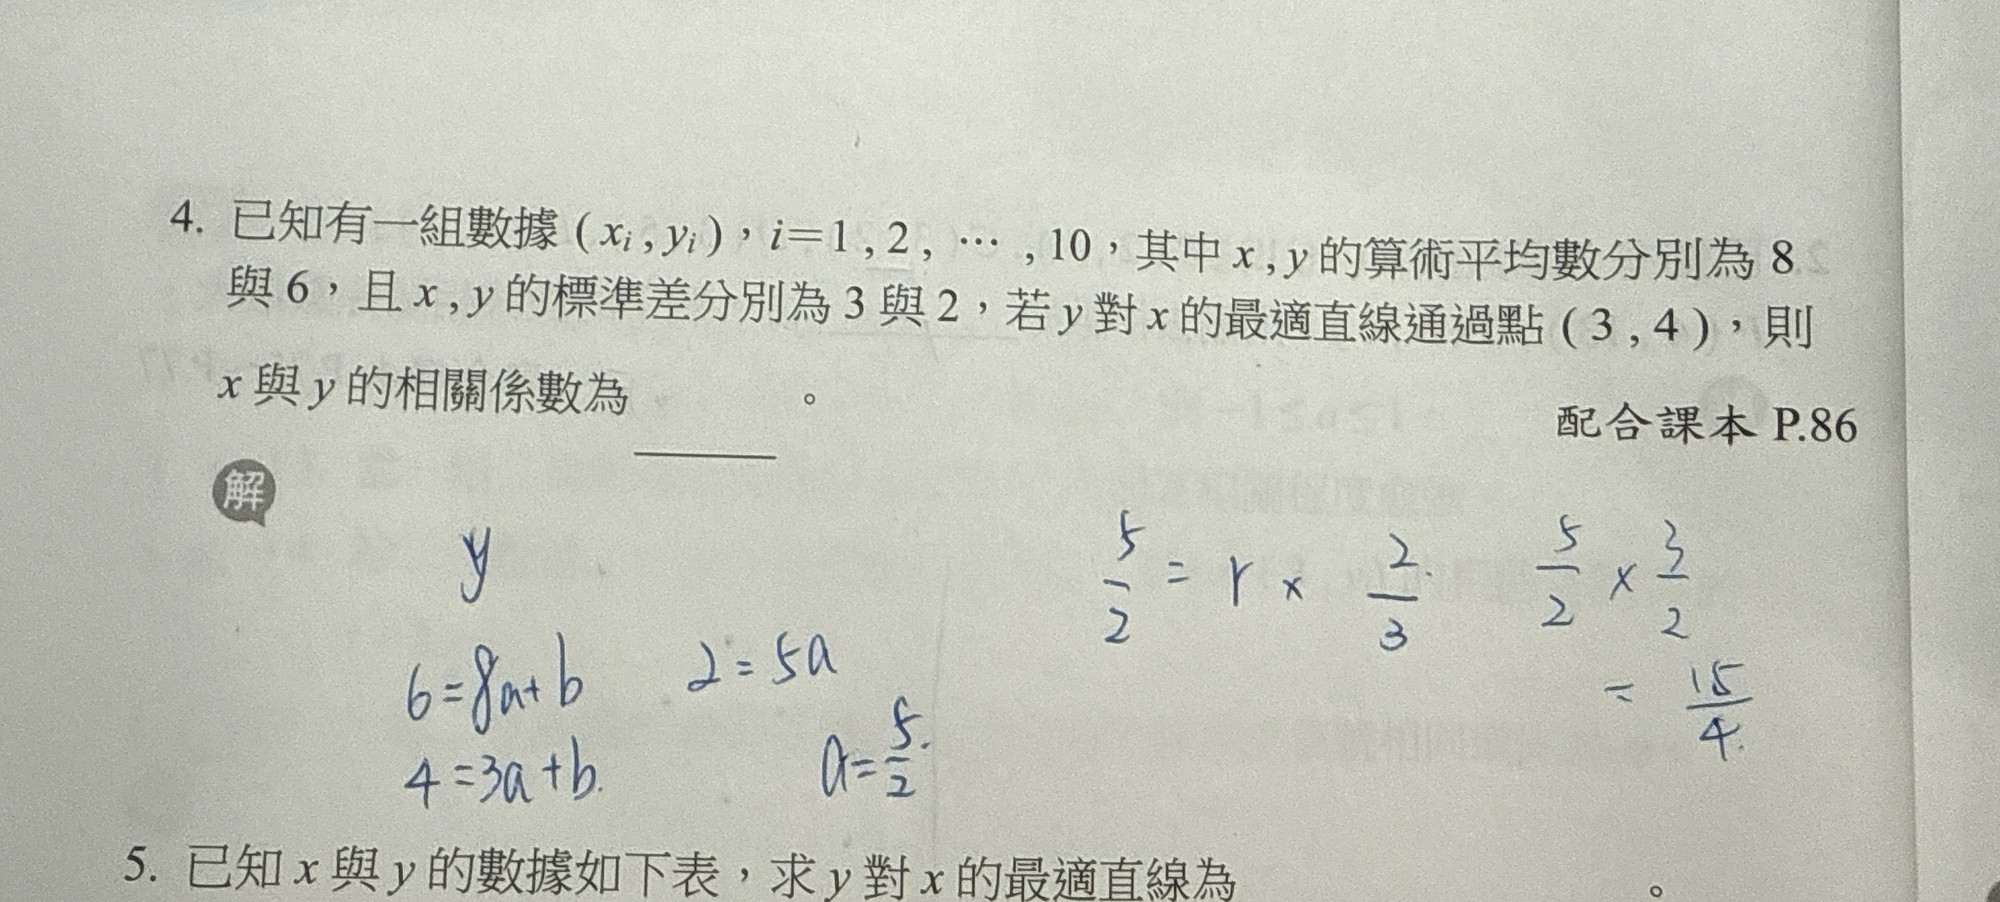 4. 已知有一組數據 ( xi , yi )，i=1 , 2 , … , 10，其中 x , y 的算術平均數分別為 8
與 6，且 x , y 的標準差分別為 3 與 2，若 y 對 x 的最適直線通過點 ( 3 , 4 )，則
x 與 y 的相關係數為＿＿＿。
配合課本 P.86
解
y
6=8a+b
4=3a+b.
2=5a
a=5/2.
5/2 = r × 2/3.
5/2 × 3/2
= 15/4.
5. 已知 x 與 y 的數據如下表，求 y 對 x 的最適直線為 。